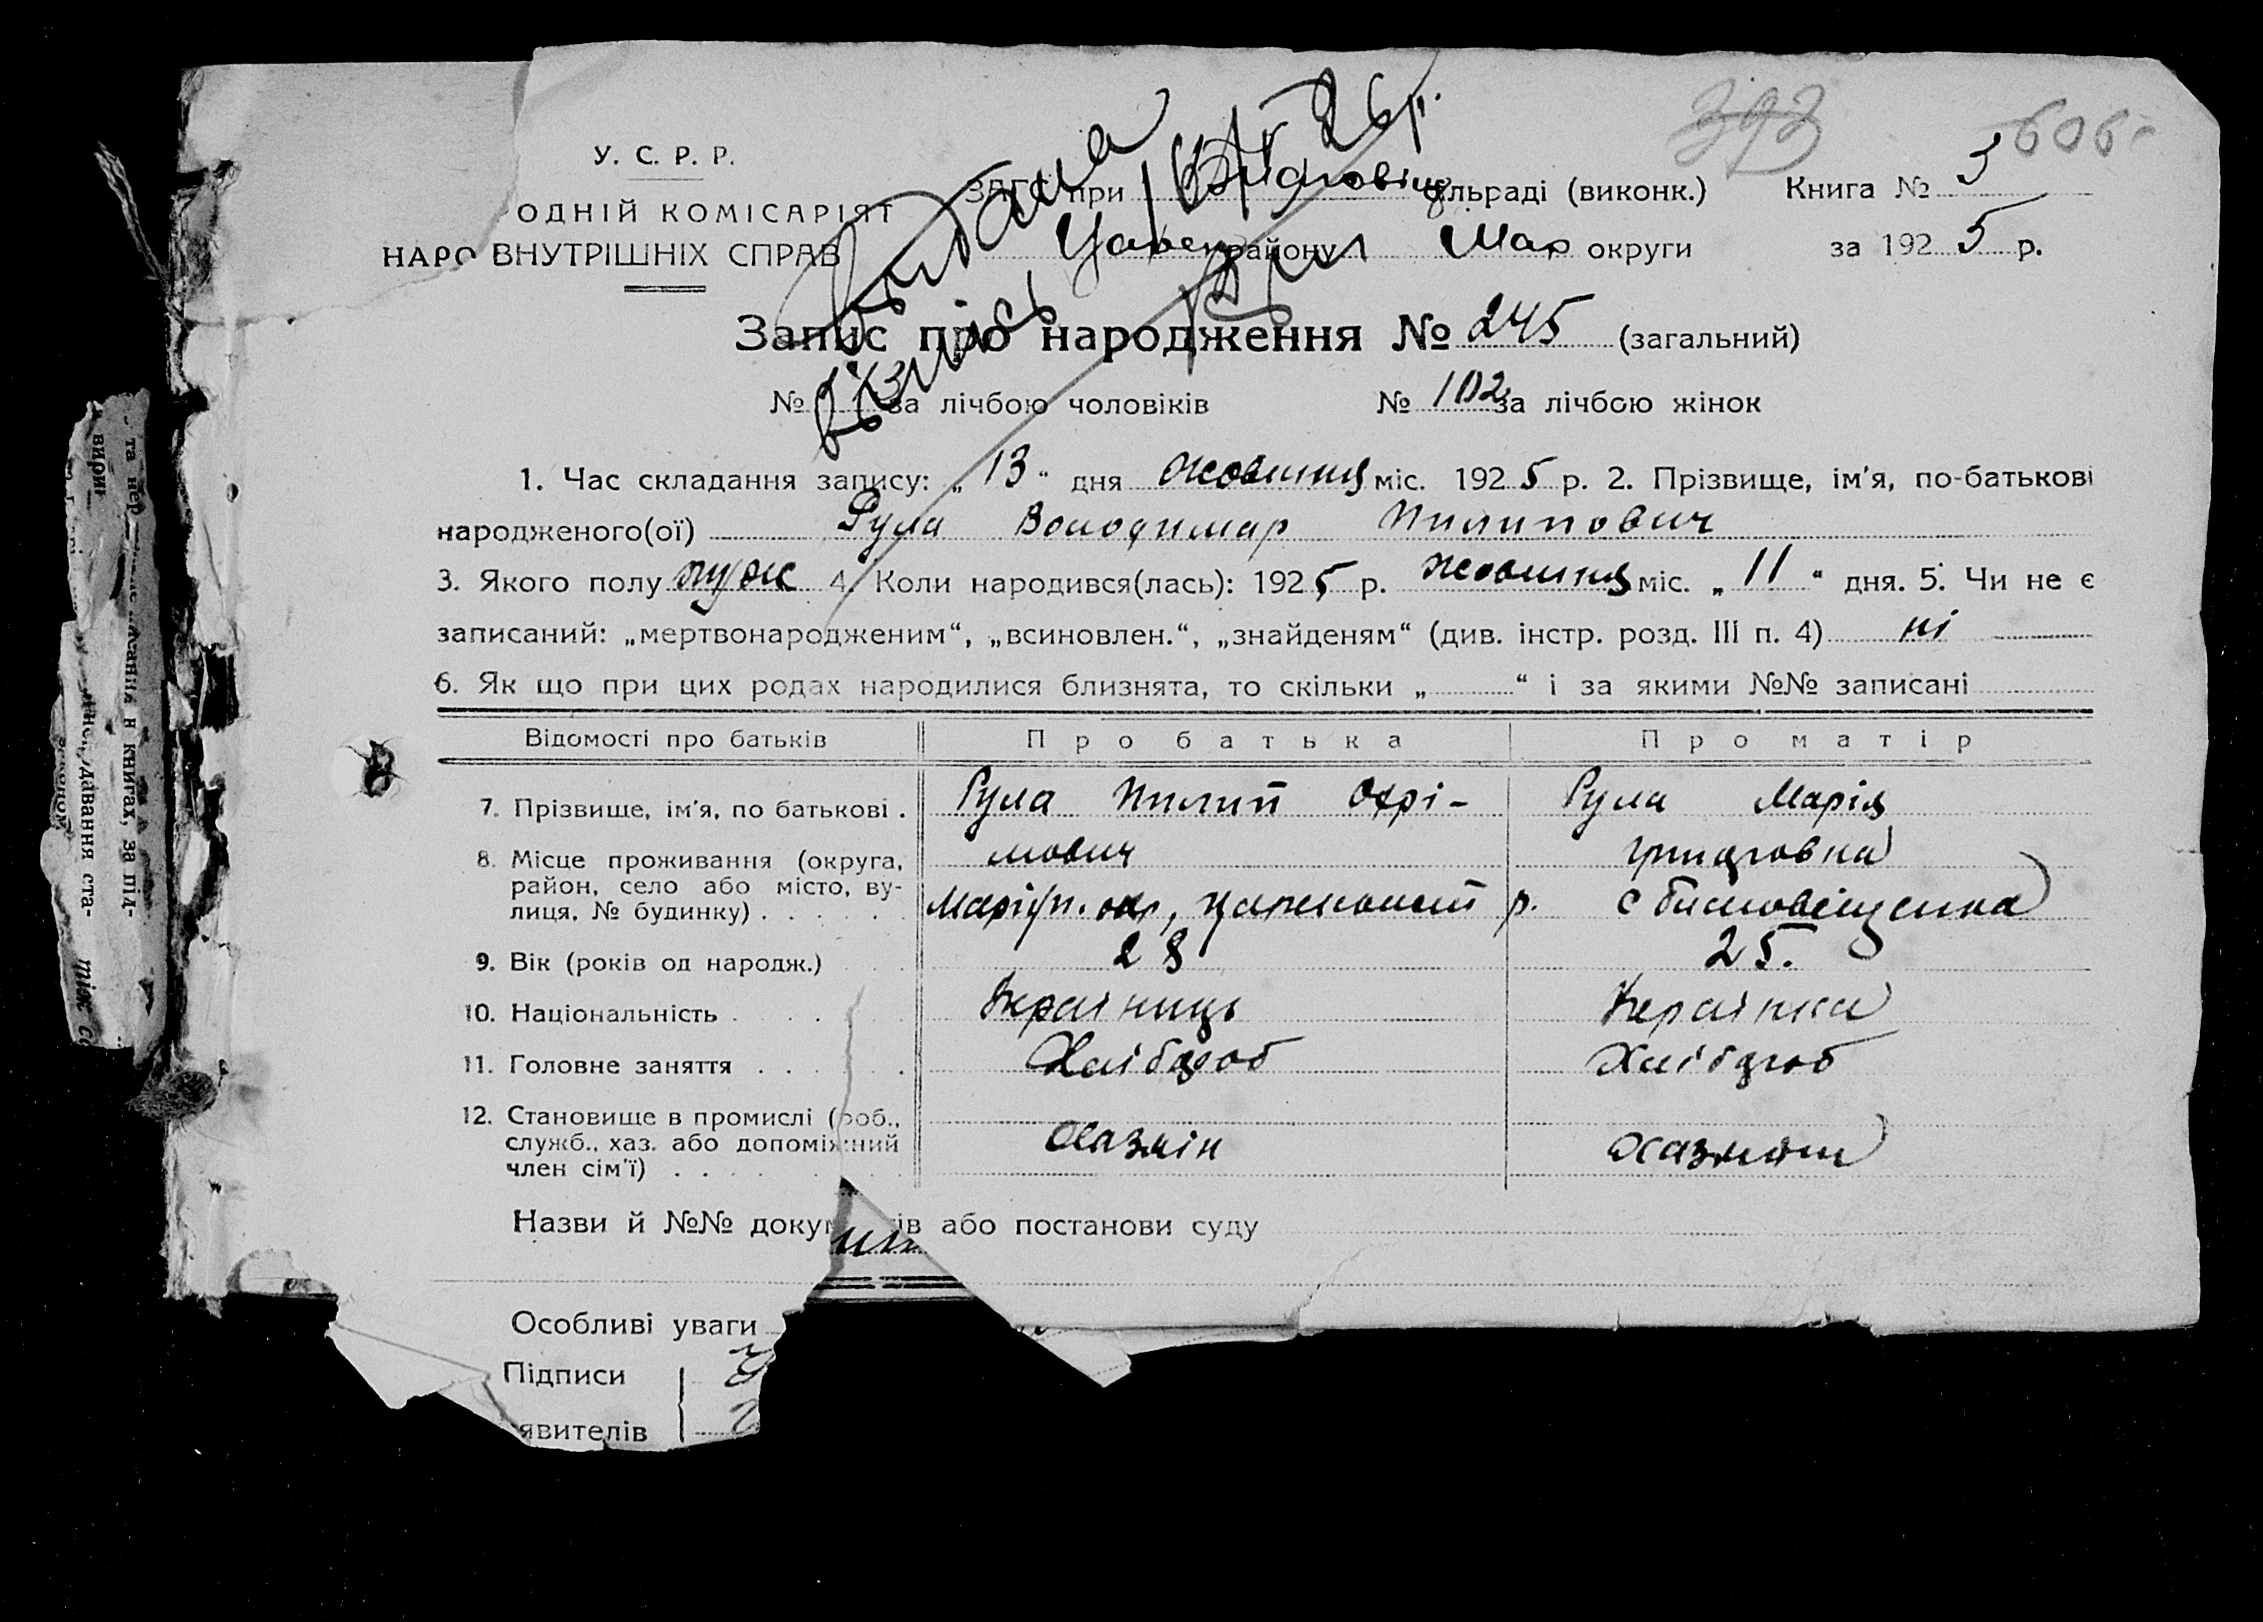 393 606
У. С. Р. Р.
ОДНІЙ КОМІСАРІЯТ
НАРО ВНУТРІШНІХ СПРАВ
Видана
випись
26 р.
ЗАГС при Благовіщ сільраді (виконк.) Книга № 3
району Мар округи за 1925 р.
Запис про народження № 245 (загальний)
№ за лічбою чоловіків № 102 за лічбою жінок
1. Час складання запису: „13“ дня жовтня міс. 1925 р. 2. Прізвище, ім'я, по-батькові
народженого(ої) Рула Володимир Пилипович
3. Якого полу муж 4. Коли народився(лась): 1925 р. жовтня міс. „11“ дня. 5. Чи не є
записаний: „мертвонародженим“, „всиновлен.“, „знайденям“ (див. інстр. розд. III п. 4) ні
6. Як що при цих родах народилися близнята, то скільки „ “ і за якими №№ записані
Відомості про батьків Про батька Про матір
7. Прізвище, ім'я, по батькові . Рула Пилип Охрі- Рула Марія
мович
8. Місце проживання (округа,
район, село або місто, ву-
лиця, № будинку) . . . . . Маріуп. окр, р. с Благовіщенка
9. Вік (років од народж.) 28 25.
10. Національність . . . . Українець Українка
11. Головне заняття . . . . . Хлібороб Хлібороб
12. Становище в промислі (роб.,
служб., хаз. або допоміжний
член сім'ї) . . . . Хазяїн хазяйка
Назви й №№ докум ів або постанови суду
Особливі уваги
Підписи
явителів